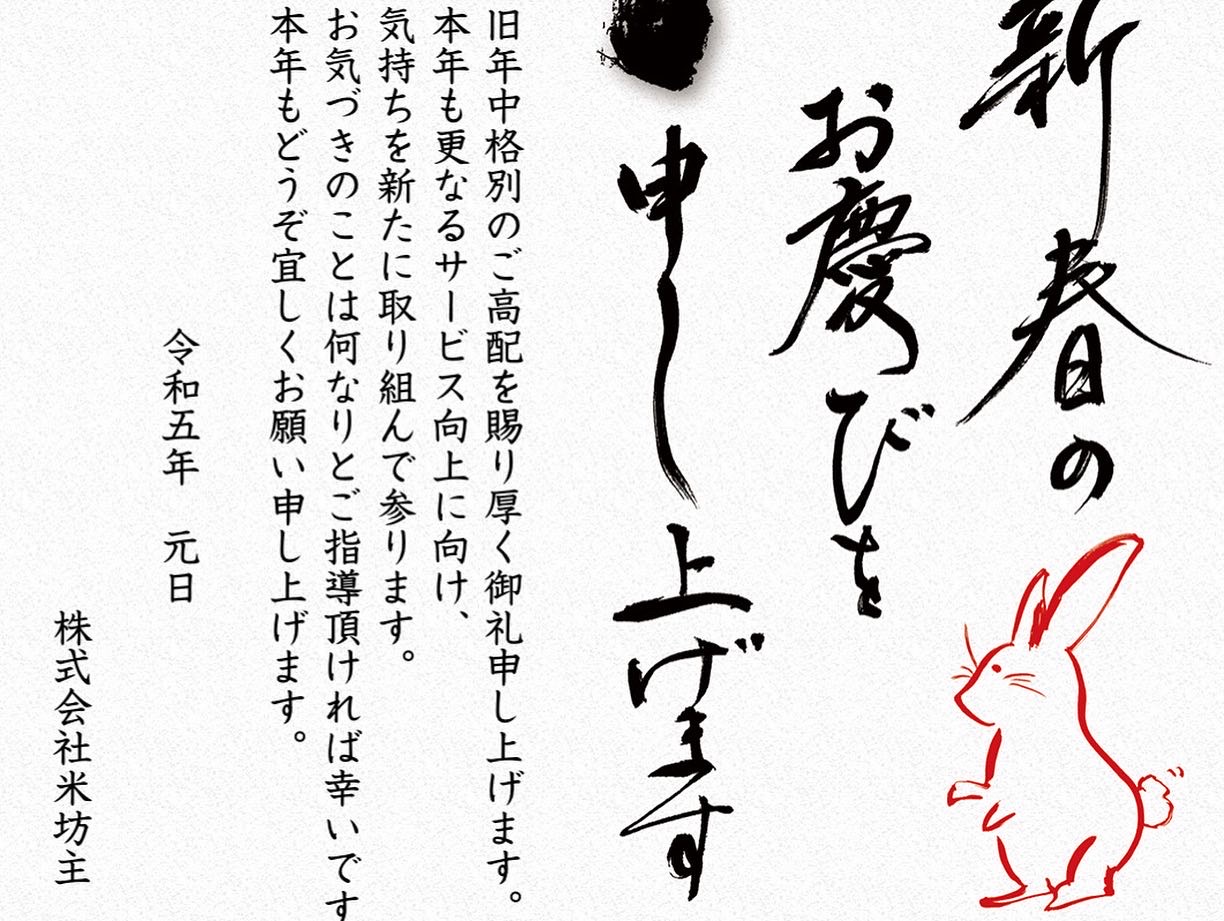 新春の
お慶びを
申し上げます
旧年中格別のご高配を賜り厚く御礼申し上げます。
本年も更なるサービス向上に向け、
気持ちを新たに取り組んで参ります。
お気づきのことは何なりとご指導頂ければ幸いです
本年もどうぞ宜しくお願い申し上げます。
令和五年　元日
株式会社米坊主